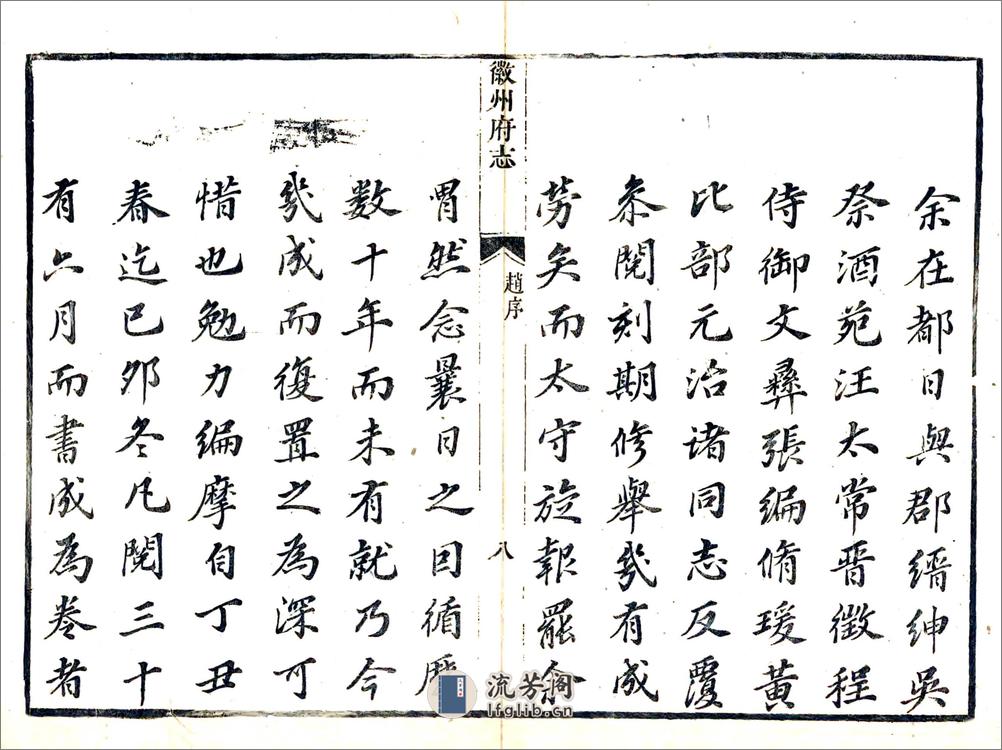 余在都日與郡縉紳吳
祭酒苑汪太常晋徵程
侍御文彝張編脩瑗黃
比部元治诸同志反覆
叅閱刻期修舉幾有成
劳矣而太守旋報罷余
徽州府志
趙序
八
胃然念曩日之因循歷
数十年而未有就乃今
幾成而復置之為深可
惜也勉力編摩自丁丑
春迄已夘冬凡閱三十
有六月而書成為卷者
流芳阁
lfglib.cn